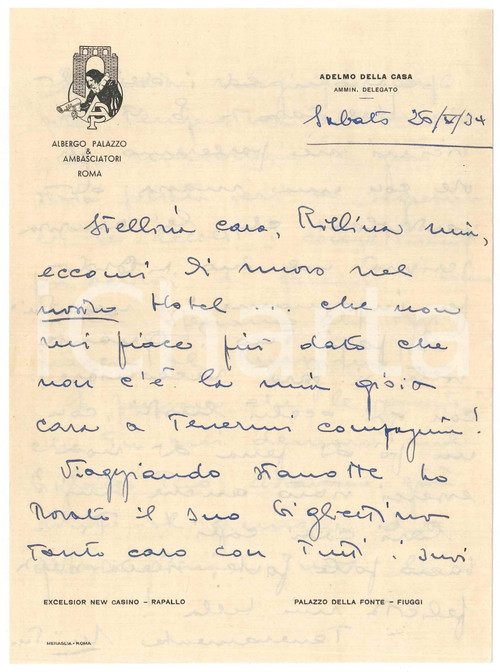 ADELMO DELLA CASA
AMMIN. DELEGATO
ALBERGO PALAZZO
&
AMBASCIATORI
ROMA
Sabato 26/V/34
Stellina cara, Rillina mia,
eccomi di nuovo nel
nostro Hotel ... che non
mi piace più dato che
non c'è la mia gioia
cara a tenermi compagnia!
Viaggiando stanotte ho
trovato il suo bigliettino
tanto caro con tutti i suoi
EXCELSIOR NEW CASINO - RAPALLO
PALAZZO DELLA FONTE - FIUGGI
MENAGLIA - ROMA
iCharta